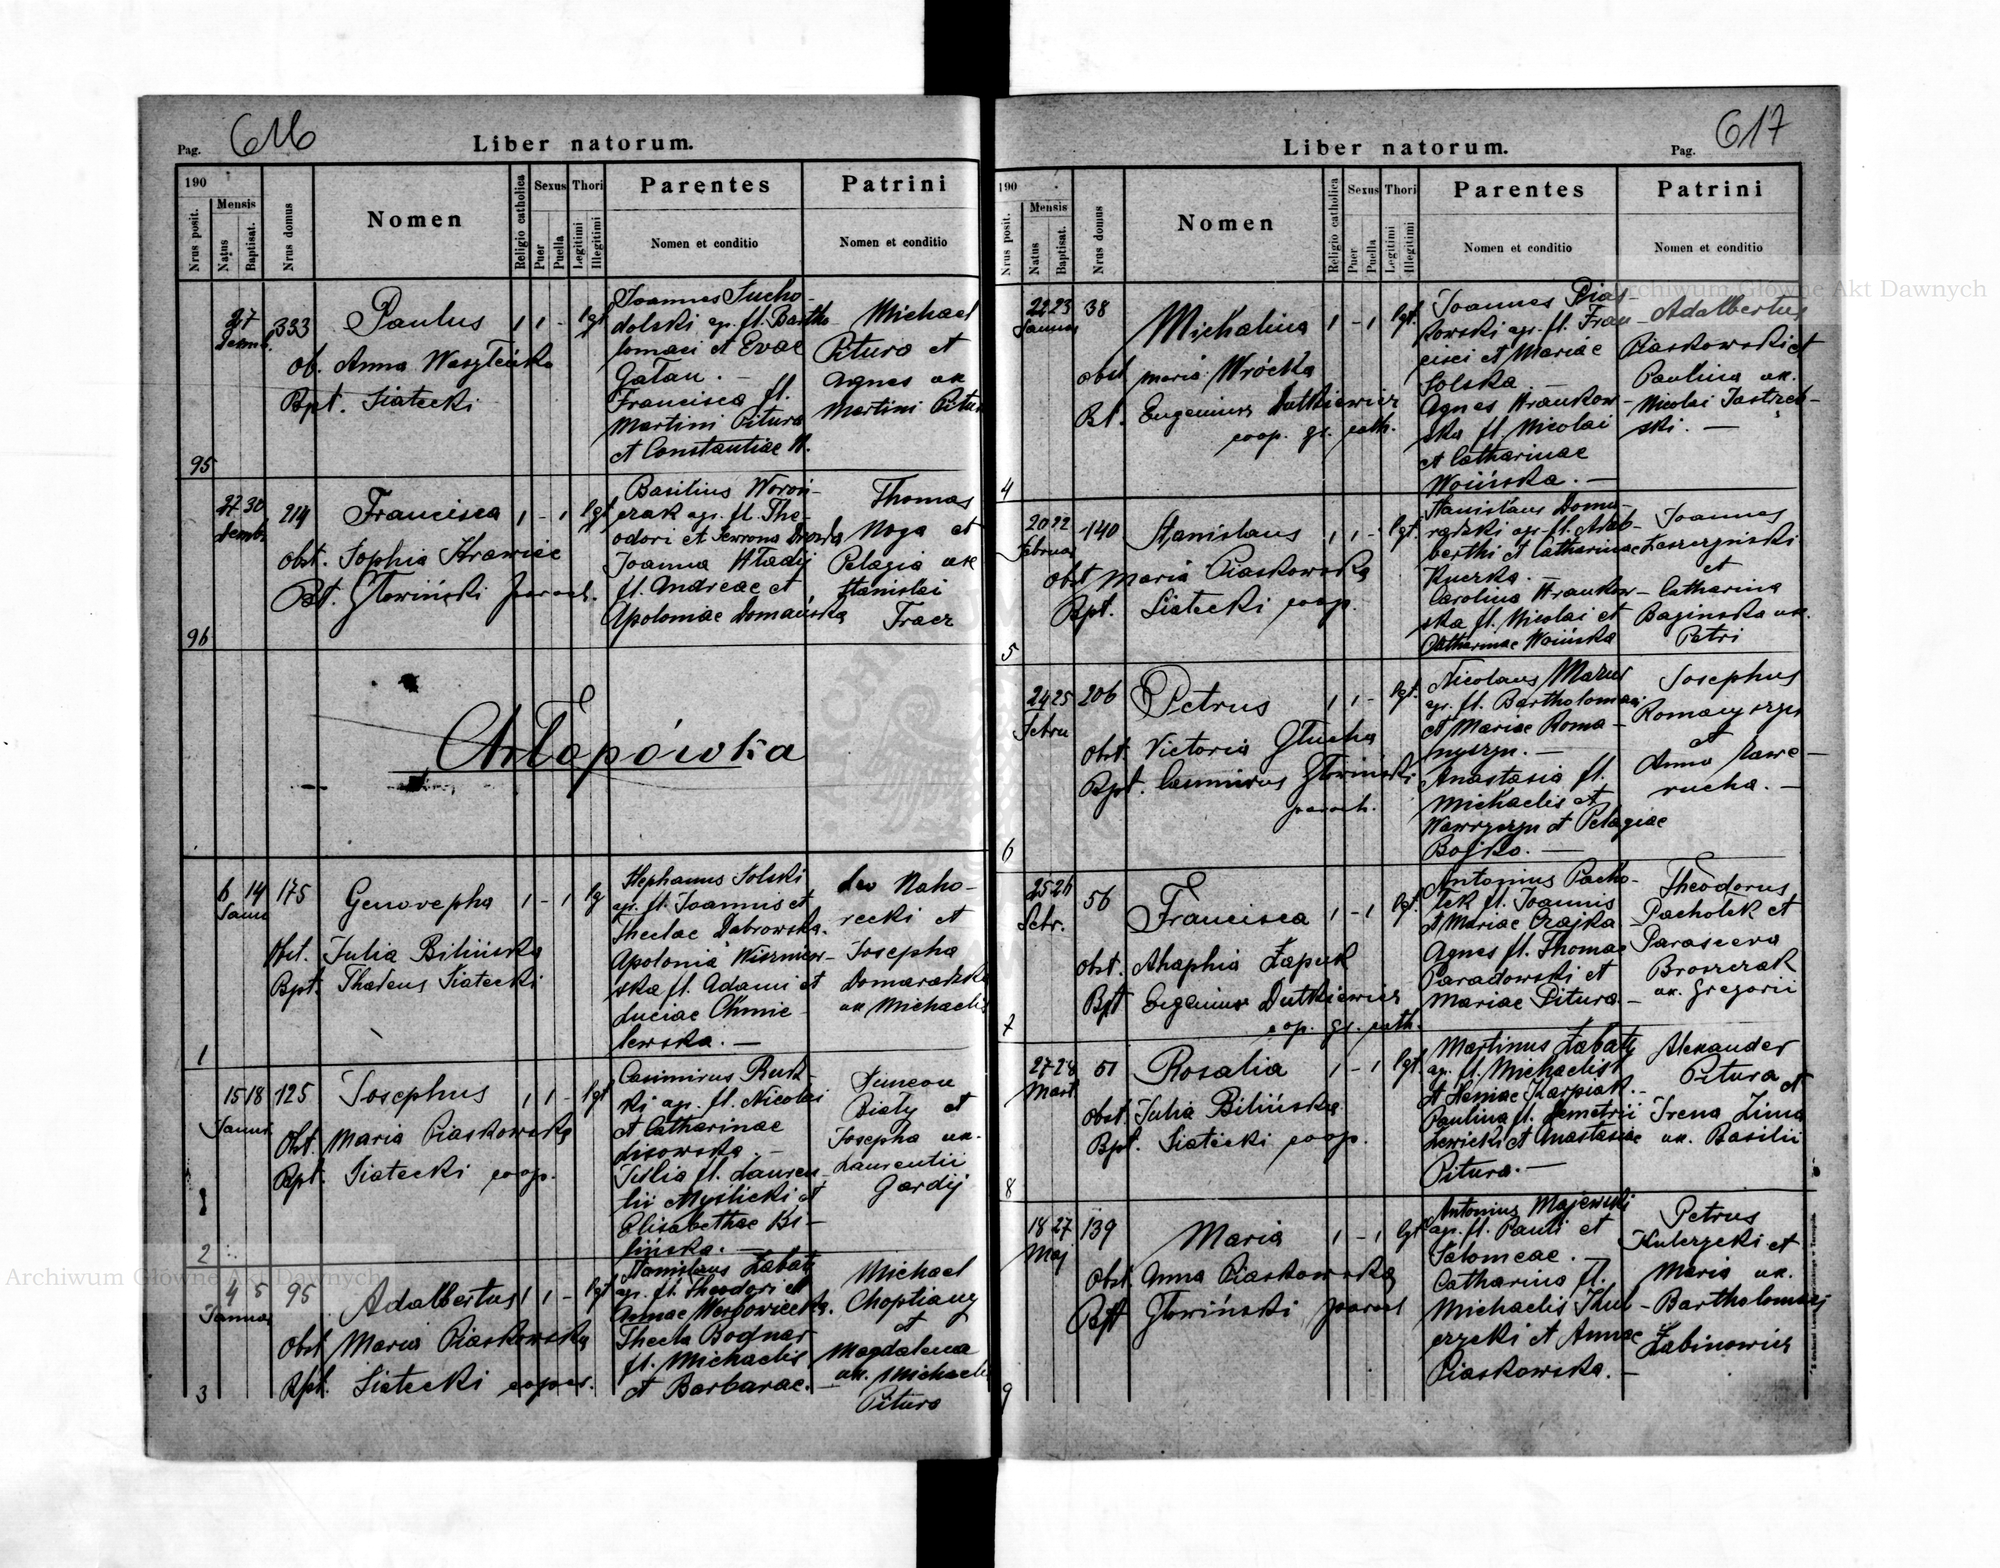 Pag. 616
Liber natorum.
190
Nrus posit.
Mensis
Natus
Baptisat.
Nrus domus
Nomen
Religio catholica
Sexus
Puer
Puella
Thori
Legitimi
Illegitimi
Parentes
Nomen et conditio
Patrini
Nomen et conditio
95
27
333
Paulus
1 1 - lgt
ob. Anna
Bpt. Siatecki
Joannes Sucho-
dolski agr. fl. Bartho
lomaei et Evae
Gałan. -
Francisca fl.
Martini Pitura
et Constantiae N.
Michael
Pitura et
Agnes ux.
Martini Pitura
96
27 30
Decemb.
214
Francisca
1 - 1 lgt
obst. Sophia Krawiec
Bpt. Głowiński paroch.
Basilius Woroń-
czak agr. fl. The-
odori et Drozda
Joanna Władij
fl. Andreae et
Apoloniae Domańska
Thomas
Noga et
Pelagia ux
Stanislai
Tracz
Chłopówka
1
6 14
Janu
175
Genovepha
1 - 1 lg
Obst. Julia Bilińska
Bpt. Thadeus Siatecki
Stephanus Solski
agr. fl. Joannis et
Theclae Dabrowska.
Apolonia Wiszniew-
ska fl. Adami et
Luciae Chmie-
lewska. -
Leo Naho-
recki et
Josepha
Domaradzka
ux Michaelis
2
15 18
Januar
125
Josephus
1 1 - lgt
Obst. Maria Piaskowska
Bpt. Siatecki coop.
Casimirus Rud-
ki agr. fl. Nicolai
et Catharinae
Lisowska. -
Julia fl. Lauren-
tii Myślicki et
Elisabethae Bi-
lińska. -
Simeon
Biały et
Josepha ux.
Laurentii
Gardij
3
4 5
Januar
95
Adalbertus
1 1 - lgt
Obst Maria Piaskowska
Bpt. Siatecki cooper.
Stanislaus Łabaty
agr. fl. Theodori et
Annae Werbowiecka.
Thecla Bodnar
fl. Michaelis
et Barbarae. -
Michael
Choptiany
et
Magdalena
ux. Michaeli
Pitura
Liber natorum.
Pag. 617
190
Nrus posit.
Mensis
Natus
Baptisat.
Nrus domus
Nomen
Religio catholica
Sexus
Puer
Puella
Thori
Legitimi
Illegitimi
Parentes
Nomen et conditio
Patrini
Nomen et conditio
4
22 23
Januar
38
Michalina
1 - 1 lgt.
obst Maria Wrócka
Bt. Eugenius Dutkiewicz
coop. gr. cath.
Joannes Pias-
kowski agr. fl. Fran-
cisci et Mariae
Solska. -
Agnes Hrankow-
ska fl. Nicolai
et Catharinae
Woińska. -
Adalbertus
Piaskowski et
Paulina ux.
Nicolai Jastrzęb-
ski. -
5
20 22
Februar
140
Stanislaus
1 1 - lgt.
Obst Maria Piaskowska
Bpt. Siatecki coop.
Stanislaus Doma-
radzki agr. fl. Adal-
berthi et Catharinae
Kuczka. -
Carolina Hrankow-
ska fl. Nicolai et
Catharinae Woińska
Joannes
Leszczyński
et
Catharina
Baginska ux.
Petri
6
24 25
Febru
206
Petrus
1 1 - lgt.
Obst. Victoria Głucha
Bpt. Casimirus Głowiński
paroch.
Nicolaus Mazur
agr. fl. Bartholomaei
et Mariae Roma-
nyszyn. -
Anastasia fl.
Michaelis et
Wawryszyn et Pelagiae
Bojko. -
Josephus
Romanyszyn
et
Anna Ławe-
rucha. -
7
25 26
Febr.
56
Francisca
1 - 1 lgt.
obst. Ahaphia Łapuk
Bpt Eugenius Dutkiewicz
cop. gr. cath.
Antonius Pacho-
łek fl. Joannis
et Mariae Czajka
Agnes fl. Thomae
Paradowski et
Mariae Pitura. -
Theodorus
Pachołek et
Parasceva
Broszczak
ux. Gregorii
8
27 28
Mart
51
Rosalia
1 - 1 lgt
obst. Julia Bilińska
Bpt. Siatecki coop.
Martinus Łabaty
agr. fl. Michaelis
et Karpiak. -
Paulina fl. Demetrii
Lewicki et Anastasiae
Pitura. -
Alexander
Pitura et
Irena Zima
ux. Basilii
9
18 27
Maj
139
Maria
1 - 1 lgt
Obst. Anna Piaskowska
Bpt Głowiński paroch
Antonius Majewski
agr. fl. Pauli et
Salomeae. -
Catharina fl.
Michaelis Kul-
czycki et Annae
Piaskowska. -
Petrus
Kulczycki et
Maria ux.
Bartholomaei
Łabinowicz
Archiwum Główne Akt Dawnych
Archiwum Główne Akt Dawnych